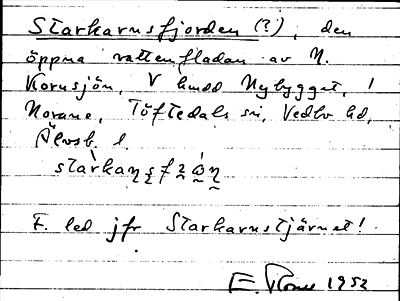 Starkarnsfjorden (?), den
öppna vattenfladan av N.
Kornsjön, V hmdd Nybygget, i
Norane, Töftedals sn, Vedbo hd,
Älvsb. l.
F. led jfr Starkarnstjärnet!
E. 1952